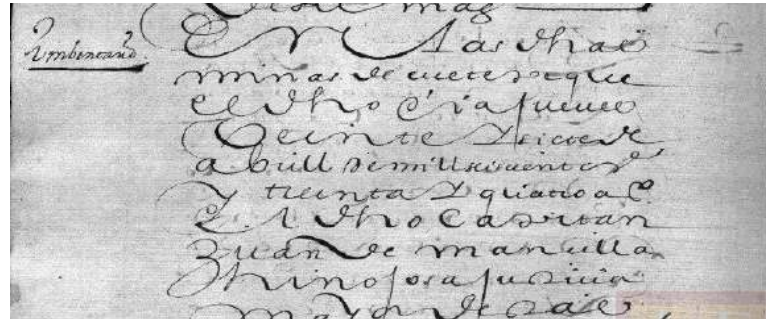 Ymbentario
En Las dhas
minas de
el dho dia jueves
Veinte y siete de
abrill de mill seiscientos
y treinta y quatro a°
El dho Capitan
Juan de mansilla
hinojosa justicia
mayor de